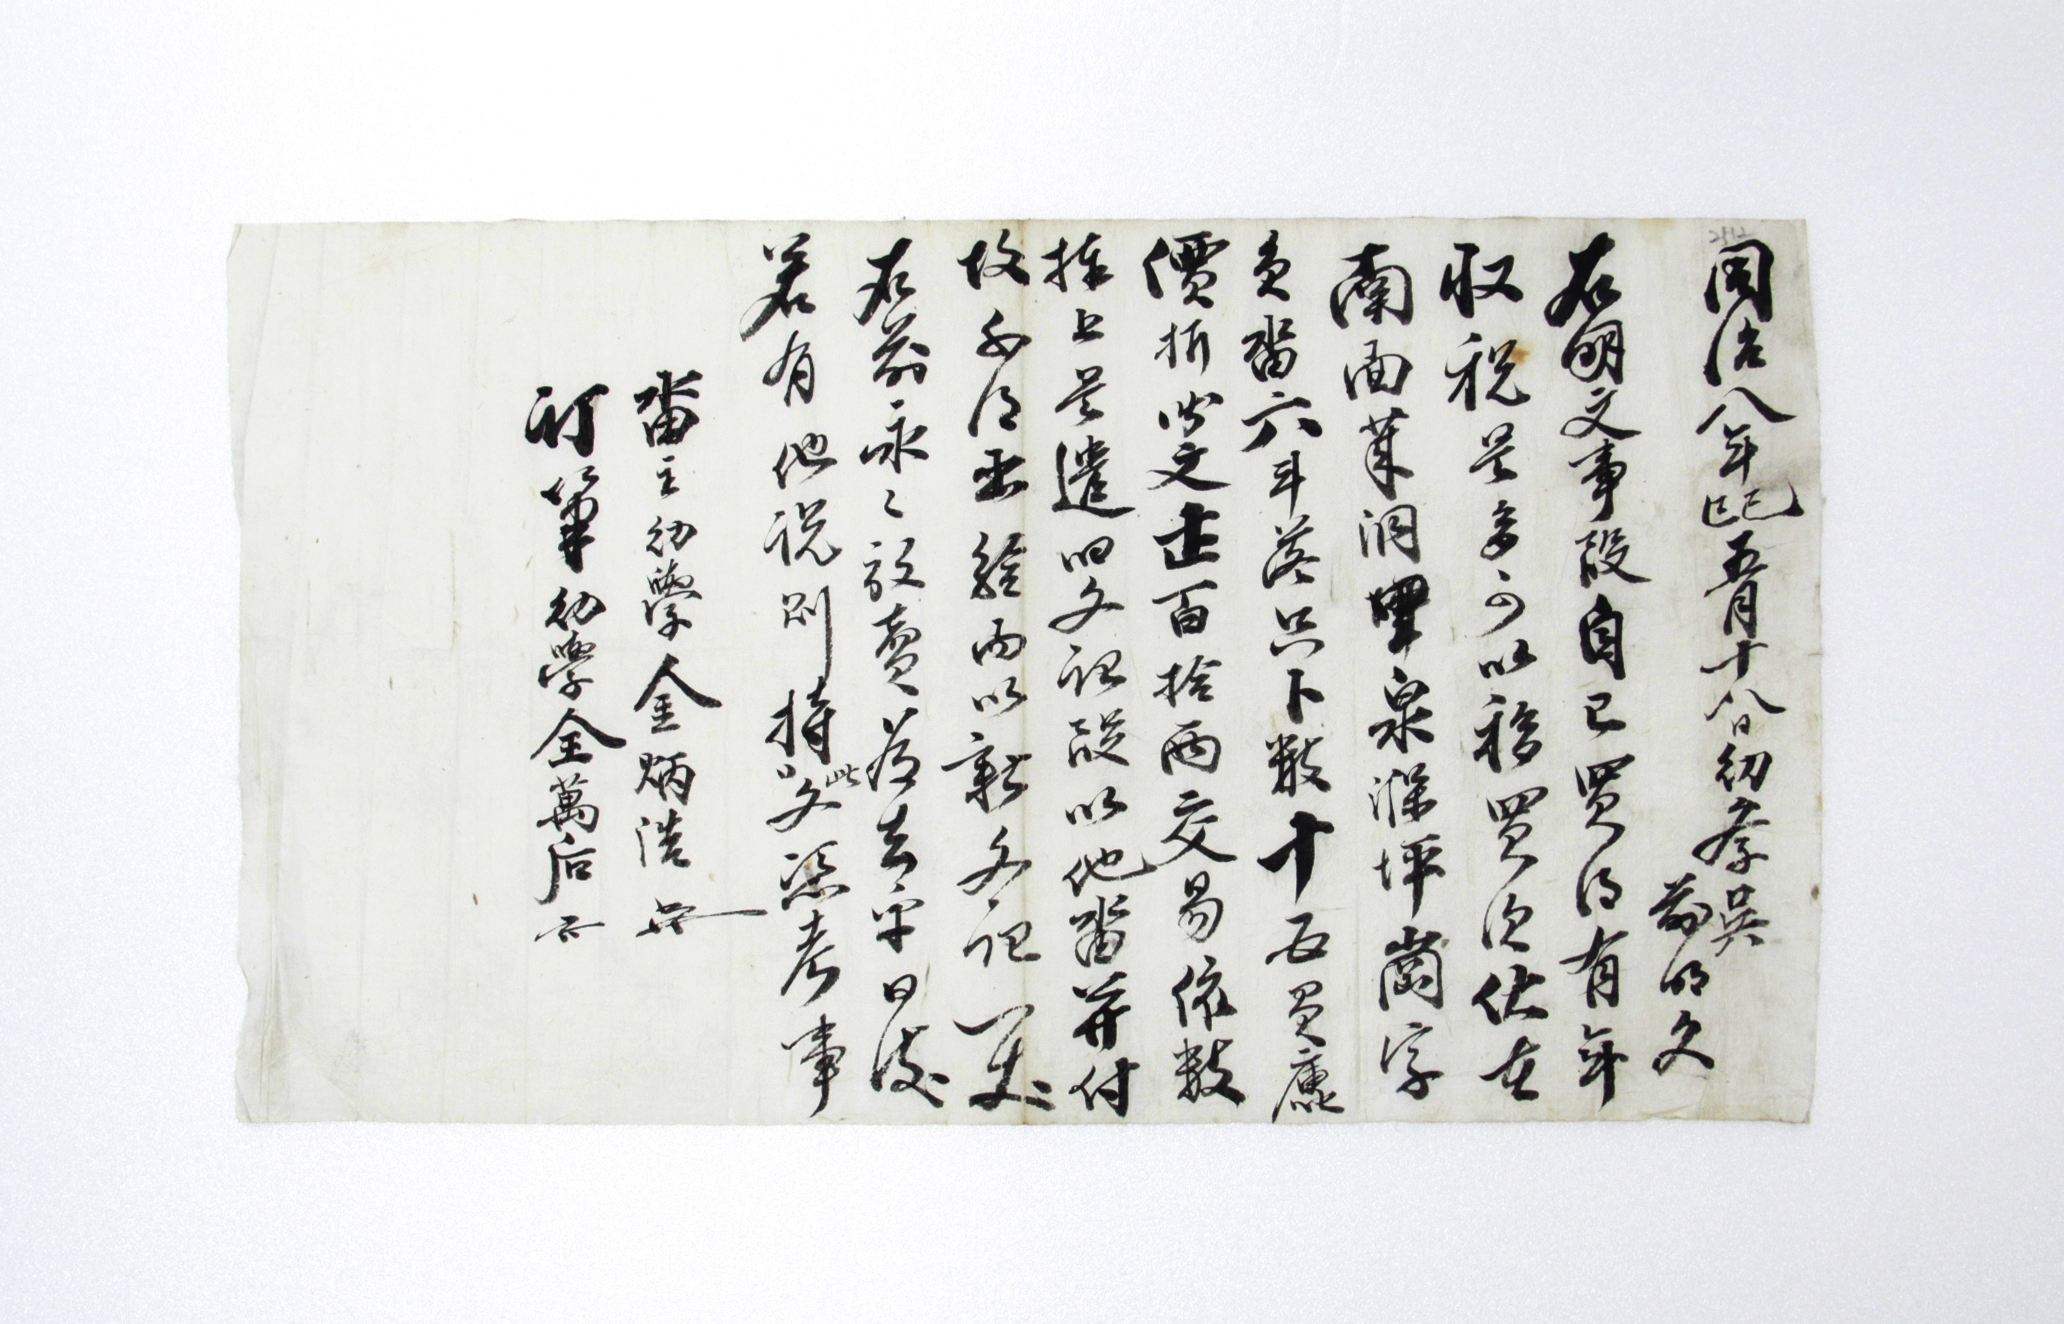 同治八年己巳五月十八日幼學吳
前明文
右明文事段自己買得有年
収稅是多可以移買次伏在
南面茱洞里泉深坪崗字
負畓六斗落只卜數十五負廤
價折錢文壹百拾兩交易依數
捧上是遣旧文記段以他畓并付
故不得出給而以新文記一丈
右前永〻放賣爲去乎日後
若有他說則持此文憑考事
畓主幼學金炳浩
訂筆幼學金萬后
2512